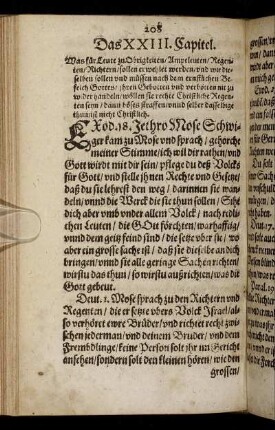 208
Das XXIII. Capitel.
Was für Leute zu Obrigkeiten/ Amptleuten/ Regen-
ten/ Richtern/ sollen erwehlet werden/ vnd wie die-
selben sollen vnd müssen nach dem ernstlichen Be-
fehlich Gottes/ ihren Gebieten vnd verbieten nit zu
wider handeln/ wöllen sie rechte Christliche Regen-
ten seyn/ dann böses straffen/ vnnd selber dasselbige
thun/ ist nicht Christlich.
EXod. 18. Jethro Mose Schwi-
ger kam zu Mose vnd sprach/ gehorche
meiner Stimme/ ich wil dir rathen/ vnd
Gott wirdt mit dir sein/ pflege du deß Volcks
für Gott/ vnd stelle jhnen Rechte vnd Gesetz/
daß du sie lehrest den weg/ darinnen sie wan-
deln/ vnnd die Werck die sie thun sollen/ Sihe
dich aber vmb vnder allem Volck/ nach redli-
chen Leuten/ die GOtt förchten/ warhafftig/
vnnd dem geitz feind sind/ die setze vber sie/ wo
aber ein grosse sache ist/ daß sie dieselbe an dich
bringen/ vnnd sie alle geringe Sachen richten/
wirstu das thun/ so wirstu außrichten/ was dir
Gott gebeut.
Deut. 1. Mose sprach zu den Richtern vnd
Regenten/ die er setzte vbers Volck Israel/ al-
so verhöret ewre Brüder/ vnd richtet recht zwi-
schen jederman/ vnd deinem Bruder/ vnd dem
Frembdlinge/ keine Person solt jhr im Gericht
ansehen/ sondern solt den kleinen hören/ wie den
grossen/